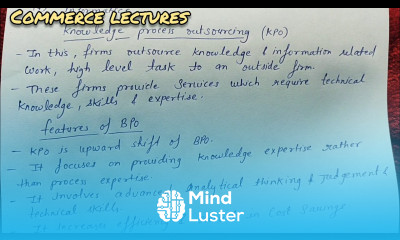 COMMERCE LECTURES
Knowledge process outsourcing (KPO)
- In this, firms outsource knowledge & information related
work, high level task to an outside firm.
- These firms provide services which require technical
knowledge, skills & expertise.
features of BPO
- KPO is upward shift of BPO.
- It focuses on providing knowledge expertise rather
than process expertise.
- It involves advanced analytical thinking & judgement &
technical skills
It increases efficiency Cost Savings
Mind
Luster